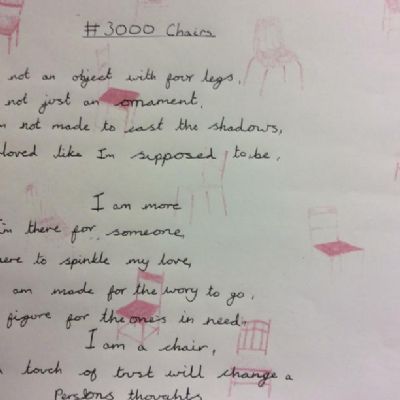 #3000 Chairs
not an object with four legs,
not just an ornament,
not made to cast the shadows,
loved like Im supposed to be,
I am more
I'm there for someone,
here to spinkle my love,
am made for the wory to go,
figure for the one's in need,
I am a chair,
touch of trust will change a
Persons thoughts